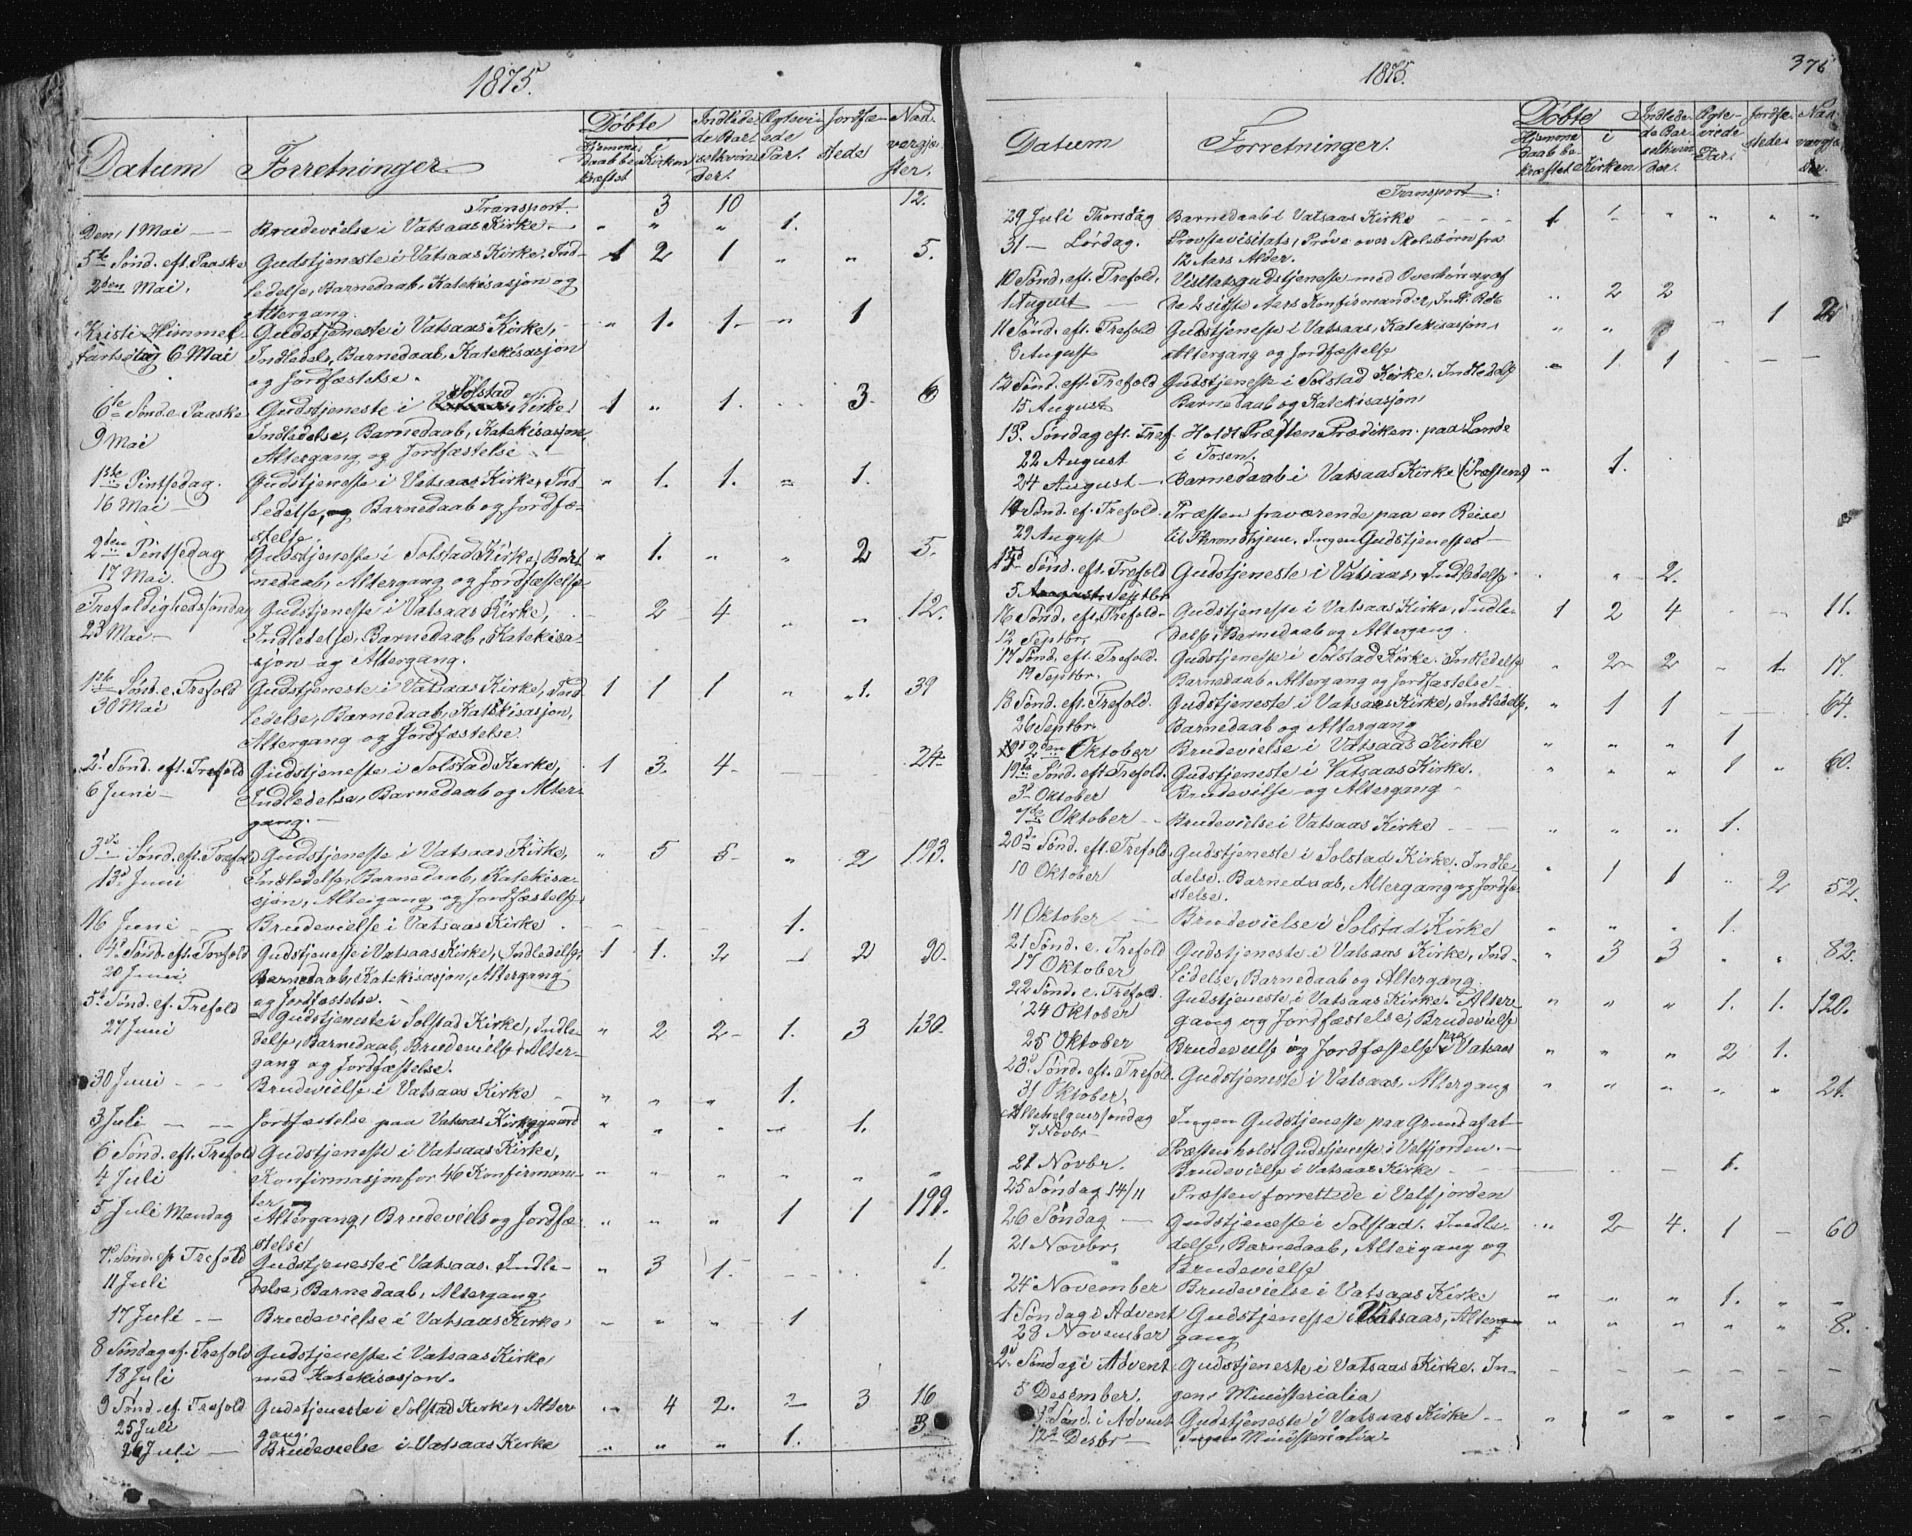 1875.
Datum Forretninger. Døbte Indledede Barselkvinder. Ægtviede Par. Jordfæstede Nadvergjæster.
Hjemmedaab bekræftet i Kirken
Transport. 3 10 12.
Den 1 Mai Brudevielse i Vatsaas Kirke " " " 1.
5te Sønd. eft. Paaske Gudstjeneste i Vatsaas Kirke. Ind- 1 2 1 " " 5.
2den Mai. ledelse, Barnedaab, Katekisasjon og
Altergang.
Kristi Himmel- Gudstjeneste i Vatsaas Kirke, " 1. 1. " 1
fartsdag 6 Mai Indledels, Barnedaab, Katekisasjon
og Jordfæstelse.
6te Sønd. e. Paaske Gudstjeneste i Solstad Kirke. 1 " 1. 3. 6
9 Mai Indledelse, Barnedaab, Katekisasjon,
Altergang og Jordfæstelse
1ste Pintsedag. Gudstjeneste i Vatsaas Kirke, Ind- " 1. 1. " 1.
16 Mai ledelse, og Barnedaab og Jordfæ-
stelse.
2den Pintsedag Gudstjeneste i Solstad Kirke, Bar- " 1. " " 2 5.
17 Mai. nedaab, Altergang og Jordfæstelse
Trefoldighedssøndag Gudstjeneste i Vatsaas Kirke, 2 4 " " 12.
23 Mai Indledelse, Barnedaab, Katekisa-
sjon og Altergang.
1ste Sønd. e. Trefold Gudstjeneste i Vatsaas Kirke, Ind- 1 1 1 " 1. 39
30 Mai ledelse, Barnedaab, Katekisasjon,
Altergang og Jordfæstelse.
2d Sønd. eft. Trefold Gudstjeneste i Solstad Kirke, 1 3. 4 24
6 Juni Indledelse, Barnedaab og Alter-
gang.
3de Sønd. eft. Trefold Gudstjeneste i Vatsaas Kirke, " 5 5 " 2 193.
13d Juni Indledelse, Barnedaab, Katekisa-
sjon, Altergang og Jordfæstelse
16 Juni Brudevielse i Vatsaas Kirke 1.
4d Sønd. eft. Trefold Gudstjeneste i Vatsaas Kirke, Indledelse, 1 1. 2 2 90.
20 Juni. Barnedaab, Katekisasjon, Altergang
og Jordfæstelse.
5d Sønd. ef. Trefold Gudstjeneste i Solstad Kirke, Indle- " 2 2 1. 3 130.
27 Juni delse, Barnedaab, Brudevielse, Alter-
gang og Jordfæstelse.
30 Juni Brudevielse i Vatsaas Kirke " " " 1.
3 Juli Jordfæstelse paa Vatsaas Kirkegaard " " " 1.
6 Sønd. eft. Trefold Gudstjeneste i Vatsaas Kirke,
4 Juli Konfirmasjon for 46 Konfirman- " " " " "
ter
5 Juli Mandag Altergang, Brudeviels og Jordfæ- " " " 1 1 199.
stelse
7d Sønd. ef. Trefold Gudstjeneste i Vatsaas. Indle- " 3 1. 1.
11 Juli delse, Barnedaab, Altergang.
17 Juli Brudevielse i Vatsaas Kirke " " 1
8 Søndag ef. Trefold Gudstjeneste i Vatsaas Kirke
18 Juli med Katekisasjon.
9 Sønd. ef. Trefold Gudstjeneste i Solstad Kirke, Alter- " 4 2. 2 3 16
25 Juli gang.
26 Juli Brudevielse i Vatsaas Kirke " " " 1. 3
1875. 376
Datum Forretninger. Døbte Indledede Barselkvinder. Ægteviede Par. Jordfæstede Nadvergjæster.
Hjemmedaab bekræftet i Kirken
Transport:
29 Juli Thorsdag Barnedaab i Vatsaas Kirke 1 1 " " " "
31 Lørdag. Provstevisitats, Prøve over Skolebørn fra
12 Aars Alder.
10 Sønd. eft. Trefold. Visitatsgudstjeneste med Overhøring af
1 August de 2 sidste Aars Konfirmander, " 2 2
11 Sønd. eft. Trefold Gudstjeneste i Vatsaas, Katekisasjon, " " 1
August Altergang og Jordfæstelse
12 Sønd. eft. Trefold Gudstjeneste i Solstad Kirke. Indledelse " 1. 1
15 August Barnedaab og Katekisasjon
13d Søndag eft. Tref. Holdt Præsten Prædiken paa Lande
22 August i Tosen.
24 August Barnedaab i Vatsaas Kirke (Præstens) " 1.
14 Sønd. ef. Trefold. Præsten fraværende paa en Reise
29 August til Throndhjem. Ingen Gudstjeneste
15d Sønd. eft. Trefold Gudstjeneste i Vatsaas, Indledelse. " 2.
5 Septbr.
16 Sønd. eft. Trefold Gudstjeneste i Vatsaas Kirke, Indle- 1 2 4 11.
12 Septbr. delse, Barnedaab og Altergang.
17 Sønd. eft. Trefold. Gudstjeneste i Solstad Kirke. Indledelse " 2 2 1. 17.
19 Septbr. Barnedaab, Altergang og Jordfæstelse
18 Sønd. eft. Trefold. Gudstjeneste i Vatsaas Kirke, Indledelse, " 1 1 64.
26 Septbr. Barnedaab og Altergang
2den Oktober Brudevielse i Vatsaas Kirke " " " 1
19de Sønd. eft. Trefold. Gudstjeneste i Vatsaas Kirke. " " " 1 " 60.
3d Oktober Brudevilse og Altergang
7de Oktober Brudevielse i Vatsaas Kirke " " " 1.
20de Sønd. eft. Trefold. Gudstjeneste i Solstad Kirke. Indle-
10 Oktober delse, Barnedaab, Altergang og Jordfæ- " 1 1 " 2 52.
stelse.
11 Oktober Brudevielse i Solstad Kirke " " " 1.
21 Sønd. e. Trefold Gudstjeneste i Vatsaas Kirke, Ind- " 3 3 " " 82.
17 Oktober ledelse, Barnedaab og Altergang.
22 Sønd. e. Trefold. Gudstjeneste i Vatsaas Kirke. Alter- " " " 1. 1. 120.
24 Oktober gang og Jordfæstelse, Brudevielse
25 Oktober Brudevielse og Jordfæstelse paa Vatsaas " " " 2 1.
23d Sønd. eft. Trefold. Gudstjeneste i Vatsaas, Altergang " " " " " 21.
31 Oktober.
Allehelgenssøndag Ingen Gudstjeneste paa Grund af at
7 Novbr. Præsten holdt Gudstjeneste i Velfjorden.
Novbr. Brudevielse i Vatsaas Kirke 1.
25 Søndag 14/11 Præsten forrettede i Velfjorden
26 Søndag Gudstjeneste i Solstad. Indle- " 2 4. 1 60
21 Novbr. delse, Barnedaab, Altergang og
Brudevielse
24 November Brudevielse i Vatsaas Kirke " " " 1. " "
1 Søndag i Advent Gudstjeneste i Vatsaas, Alter- " " " " " 8.
28 November gang
2d Søndag i Advent Gudstjeneste i Vatsaas Kirke. In-
5 Desember. gen Ministerialia
3d Sønd. i Advent Gudstjeneste i Vatsaas Kirke " " " " " "
12te Desbr Ingen Ministerialia